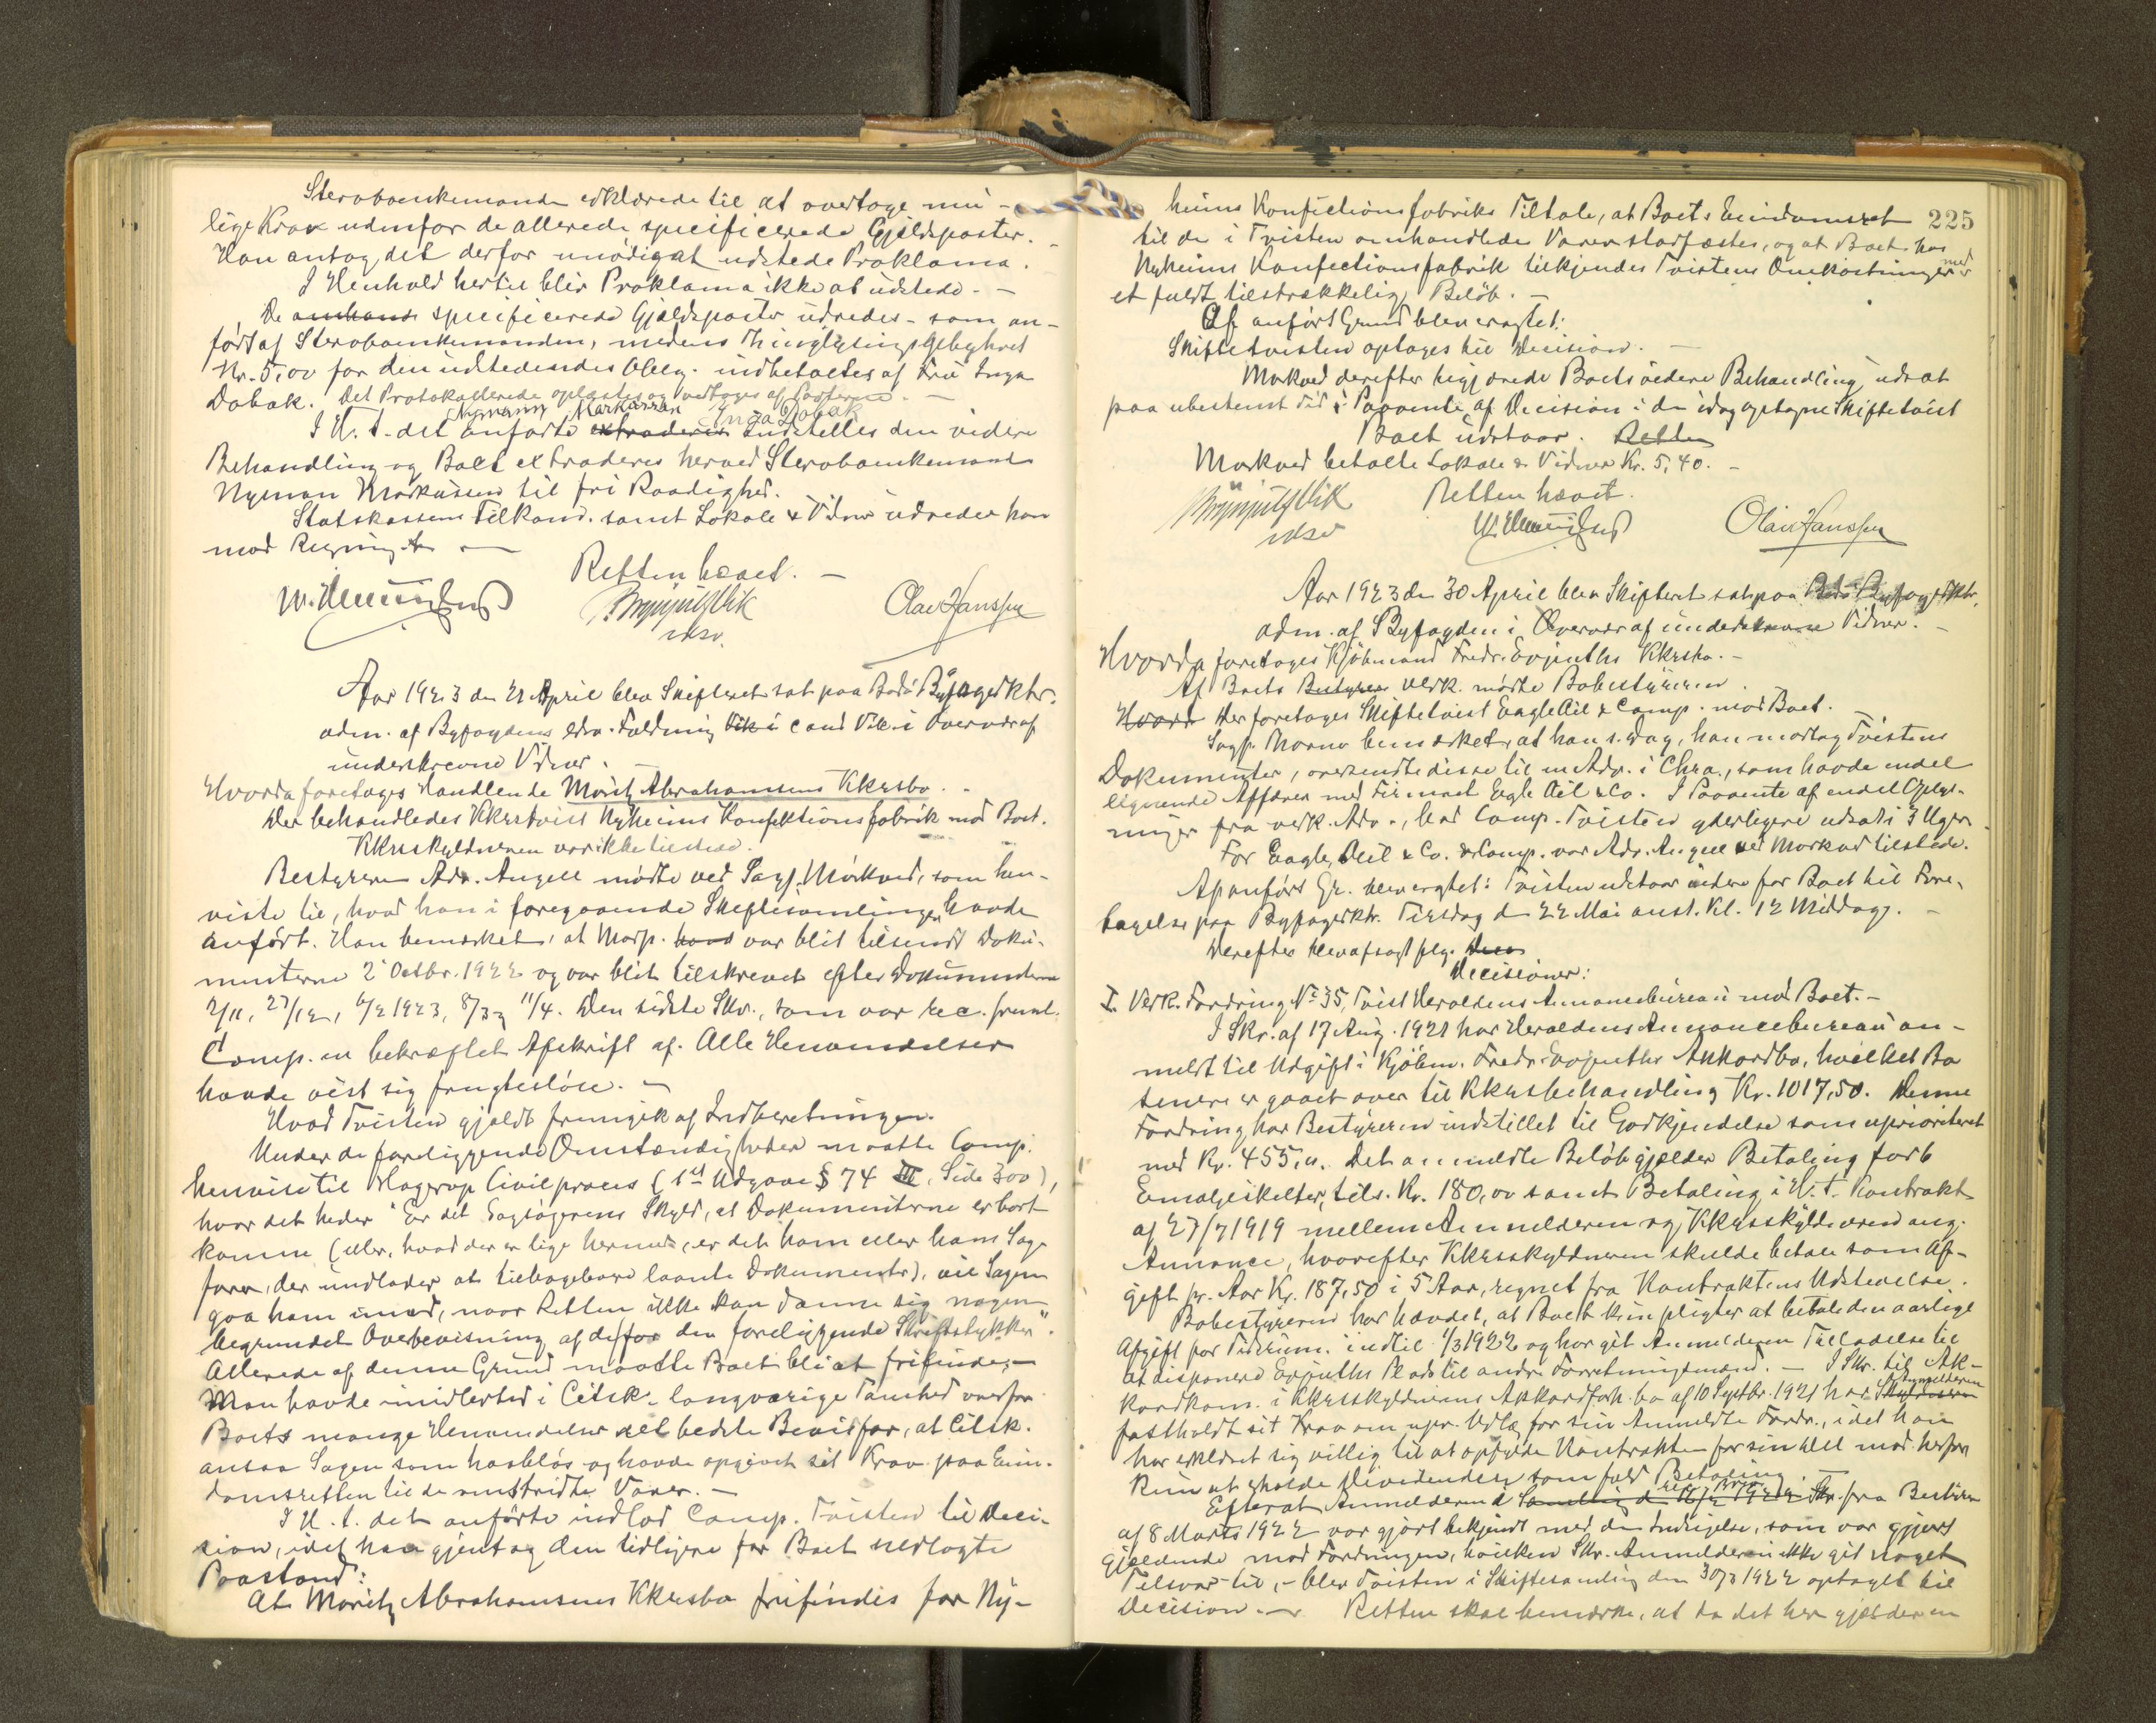 Stervboenkemanden erklærede til at overtage mu-
lige Krav udenfor de allerede specificerede Gjeldsposter.
Han antog det derfor unødigt at udstede Proklama.
I Henhold hertil blir Proklama ikke at udstede. -
De specificerede Gjældsposter udredes - som an-
ført af Stervboenkemanden, medens Thinglysingsgebyhret
Kr. 5,00 for den udstedendes Oblig. indbetaltes af Fru Inga
Dabak. Det Protokollerede oplæstes og vedtoges af Parterne. -
Nymann Markussen Inga Dabak
I H. t. det anførte extraderes indstilles den videre
Behandling og Boet extraderes herved Stervboenkemand
Nyman Markussen til fri Raadighed.
Statskassens Tilkom. samt Lokale & Vidner udreder han
mod Regning.
Retten hævet. -
Brynjulf Vik
Olav Hanssen
Aar 1923 den 21 April blev Skifteret sat paa Bodø Byfogedktr.
adm. af Byfogdens edsv. Fuldmægtig Vik i cand Vik i Overvær af
underskrevne Vidner.
Hvorda foretages Handlende Moritz Abrahamsens Kkrsbo.
Der behandledes Kkrstvist Nyheims Konfektionsfabrik mod Boet.
Kkrsskyldneren var ikke tilstede.
Bestyreren Adv. Angell mødte ved Sagf. Mørkved, som hen-
viste til, hvad han i foregaaende Skiftesamlinger havde
anført. Han bemærket, at Modp. havd var blit tilsendt Doku-
menterne 2 Octbr. 1922 og var blit tilskrevet efter Dokumenterne
2/11, 27/12, 6/2 1923, 8/3 og 11/4. Den sidste Skr., som var rec. freml.
Comp. en bekræftet Afskrift af. Alle Henvendelser
havde vist sig frugtesløse. -
Hvad Tvisten gjaldt fremgik af Indberetningen.
Under de foreliggende Omstændigheder maatte Comp.
henvise til Hagerup Civilproces (1st Udgave § 74 III, Side 300),
hvor det heder "Er det Sagsøgerens Skyld, at Dokumenterne er bort
komne (eller, hvad der er lige hermed, er det ham eller hans Sag-
fører, der undlader at tilbagelevere laante Dokumenter), vil Sagen
gaa ham imod, naar Retten ikke kan danne sig nogen
begrundet Overbevisning af de for den foreliggende Skriftstykker".
Allerede af denne Grund maatte Boet bli at frifinde. -
Man havde imidlertid i Citsk. langvarige Taushed overfor
Boets mange Henvendelser det bedste Bevis for, at Citsk.
ansaa Sagen som haabløs og havde opgivet sit Krav paa Eien-
domsretten til de omstridte Varer. -
I H. t. det anførte indlod Comp. Tvisten til Deci-
sion, idet han gjentog den tidligere for Boet nedlagte
Paastand:
At Moritz Abrahamsens Kkrsbo frifindes for Ny-
225
heims Konfectionsfabriks Tiltale, at Boets Eiendomsret
til de i Tvisten omhandlede Varer stadfæstes, og at Boet hos
Nyheims Konfectionsfabrik tilkjendes Tvistens Omkostninger med
et fuldt tilstrækkelig Beløb. -
Af anført Grund blev eragtet:
Skiftetvisten optages til Decision. -
Mørkved derefter begjærede Boets videre Behandling udsat
paa ubestemt Tid i Paavente af Decision i den idag optagne Skiftetvist
Boet udstaar. Retten
Mørkved betalte Lokale & Vidner Kr. 5,40. -
Retten hævet.
Brynjulf Vik
Olav Hanssen
Aar 1923 den 30 April blev Skifteret sat paa Bodø Byfogedktr.
adm. af Byfogden i Overvær af underskrevne Vidner. -
Hvorda foretages Kjøbmand Fredr. Evjenths Kkrsbo. -
Af Boets Bestyrer Vedk. mødte Bobestyreren.
Hvord Der foretages Skiftetvist Eagle Oil & Comp. mod Boet.
Sagf. Moene bemærket, at han s. Dag, han modtog Tvistens
Dokumenter, oversendte disse til en Adv. i Chra., som havde endel
lignende Affærer med Firmaet Eagle Oil & Co. I Paavente af endel Oplys-
ninger fra vedk. Adv., bad Comp. Tvisten yderligere udsat i 3 Uger.
For Eagle Oil & Co. & Comp. var Adv. Angell ved Mørkved tilstede.
Af anført Gr. blev eragtet: Tvisten udstaar videre for Boet til Fore-
tagelse paa Byfogedktr. Tirsdag d 22 Mai anst. Kl. 12 Middag. -
Derefter blev afsagt flg. Deci
Decisioner:
I. Vedk. Fordring No 35, Tvist Heroldens Annoncebureau mod Boet. -
I Skr. af 17 Aug. 1921 har Heroldens Annoncebureau an-
meldt til Udgift i Kjøbm. Fredr. Evjenths Akkordbo, hvilket Bo
senere er gaaet over til Kkrsbehandling Kr. 1017,50. Denne
Fordring har Bestyreren indstillet til Godkjendelse som uprioriteret
med Kr. 455,00. Det anmeldte Beløb gjælder Betaling for 6
Emaljeskilter, tils. Kr. 180,00 samt Betaling i H. t. Kontrakt
af 27/7 1919 mellem Anmelderen og Kkrsskyldneren ang.
Annonce, hvorefter Kkrsskyldneren skulde betale som Af-
gift pr. Aar Kr. 187,50 i 5 Aar, regnet fra Kontraktens Udstedelse.
Bobestyreren har hævdet, at Boet kun pligter at betale den aarlige
Afgift for Tidsrum. indtil 1/3 1922 og har git Anmelderen Tilladelse til
at disponere Evjenths Plads til andre Forretningsmænd. - I Skr. til Ak-
kordkom. i Kkrsskyldnerens Akkordforh. bo af 10 Septbr. 1921 har Anmelderen
fastholdt sit Krav om upr. Udlæg for sin Anmeldte Fordr., idet han
har erklæret sig villig til at opfylde Kontrakten for sin Del mod herfor
kun at erholde Dividenden som fuld Betaling. -
Efterat Anmelderen Skr. fra Bestyrer
af 8 Marts 1922 var gjort bekjendt med den Indsigelse, som var gjort
gjældende mod Fordringen, hvilken Skr. Anmelderen ikke git noget
Tilsvar til, - blev Tvisten i Skiftesamling den 30/3 1922 optaget til
Decision. - Retten skal bemærke, at da det her gjælder en